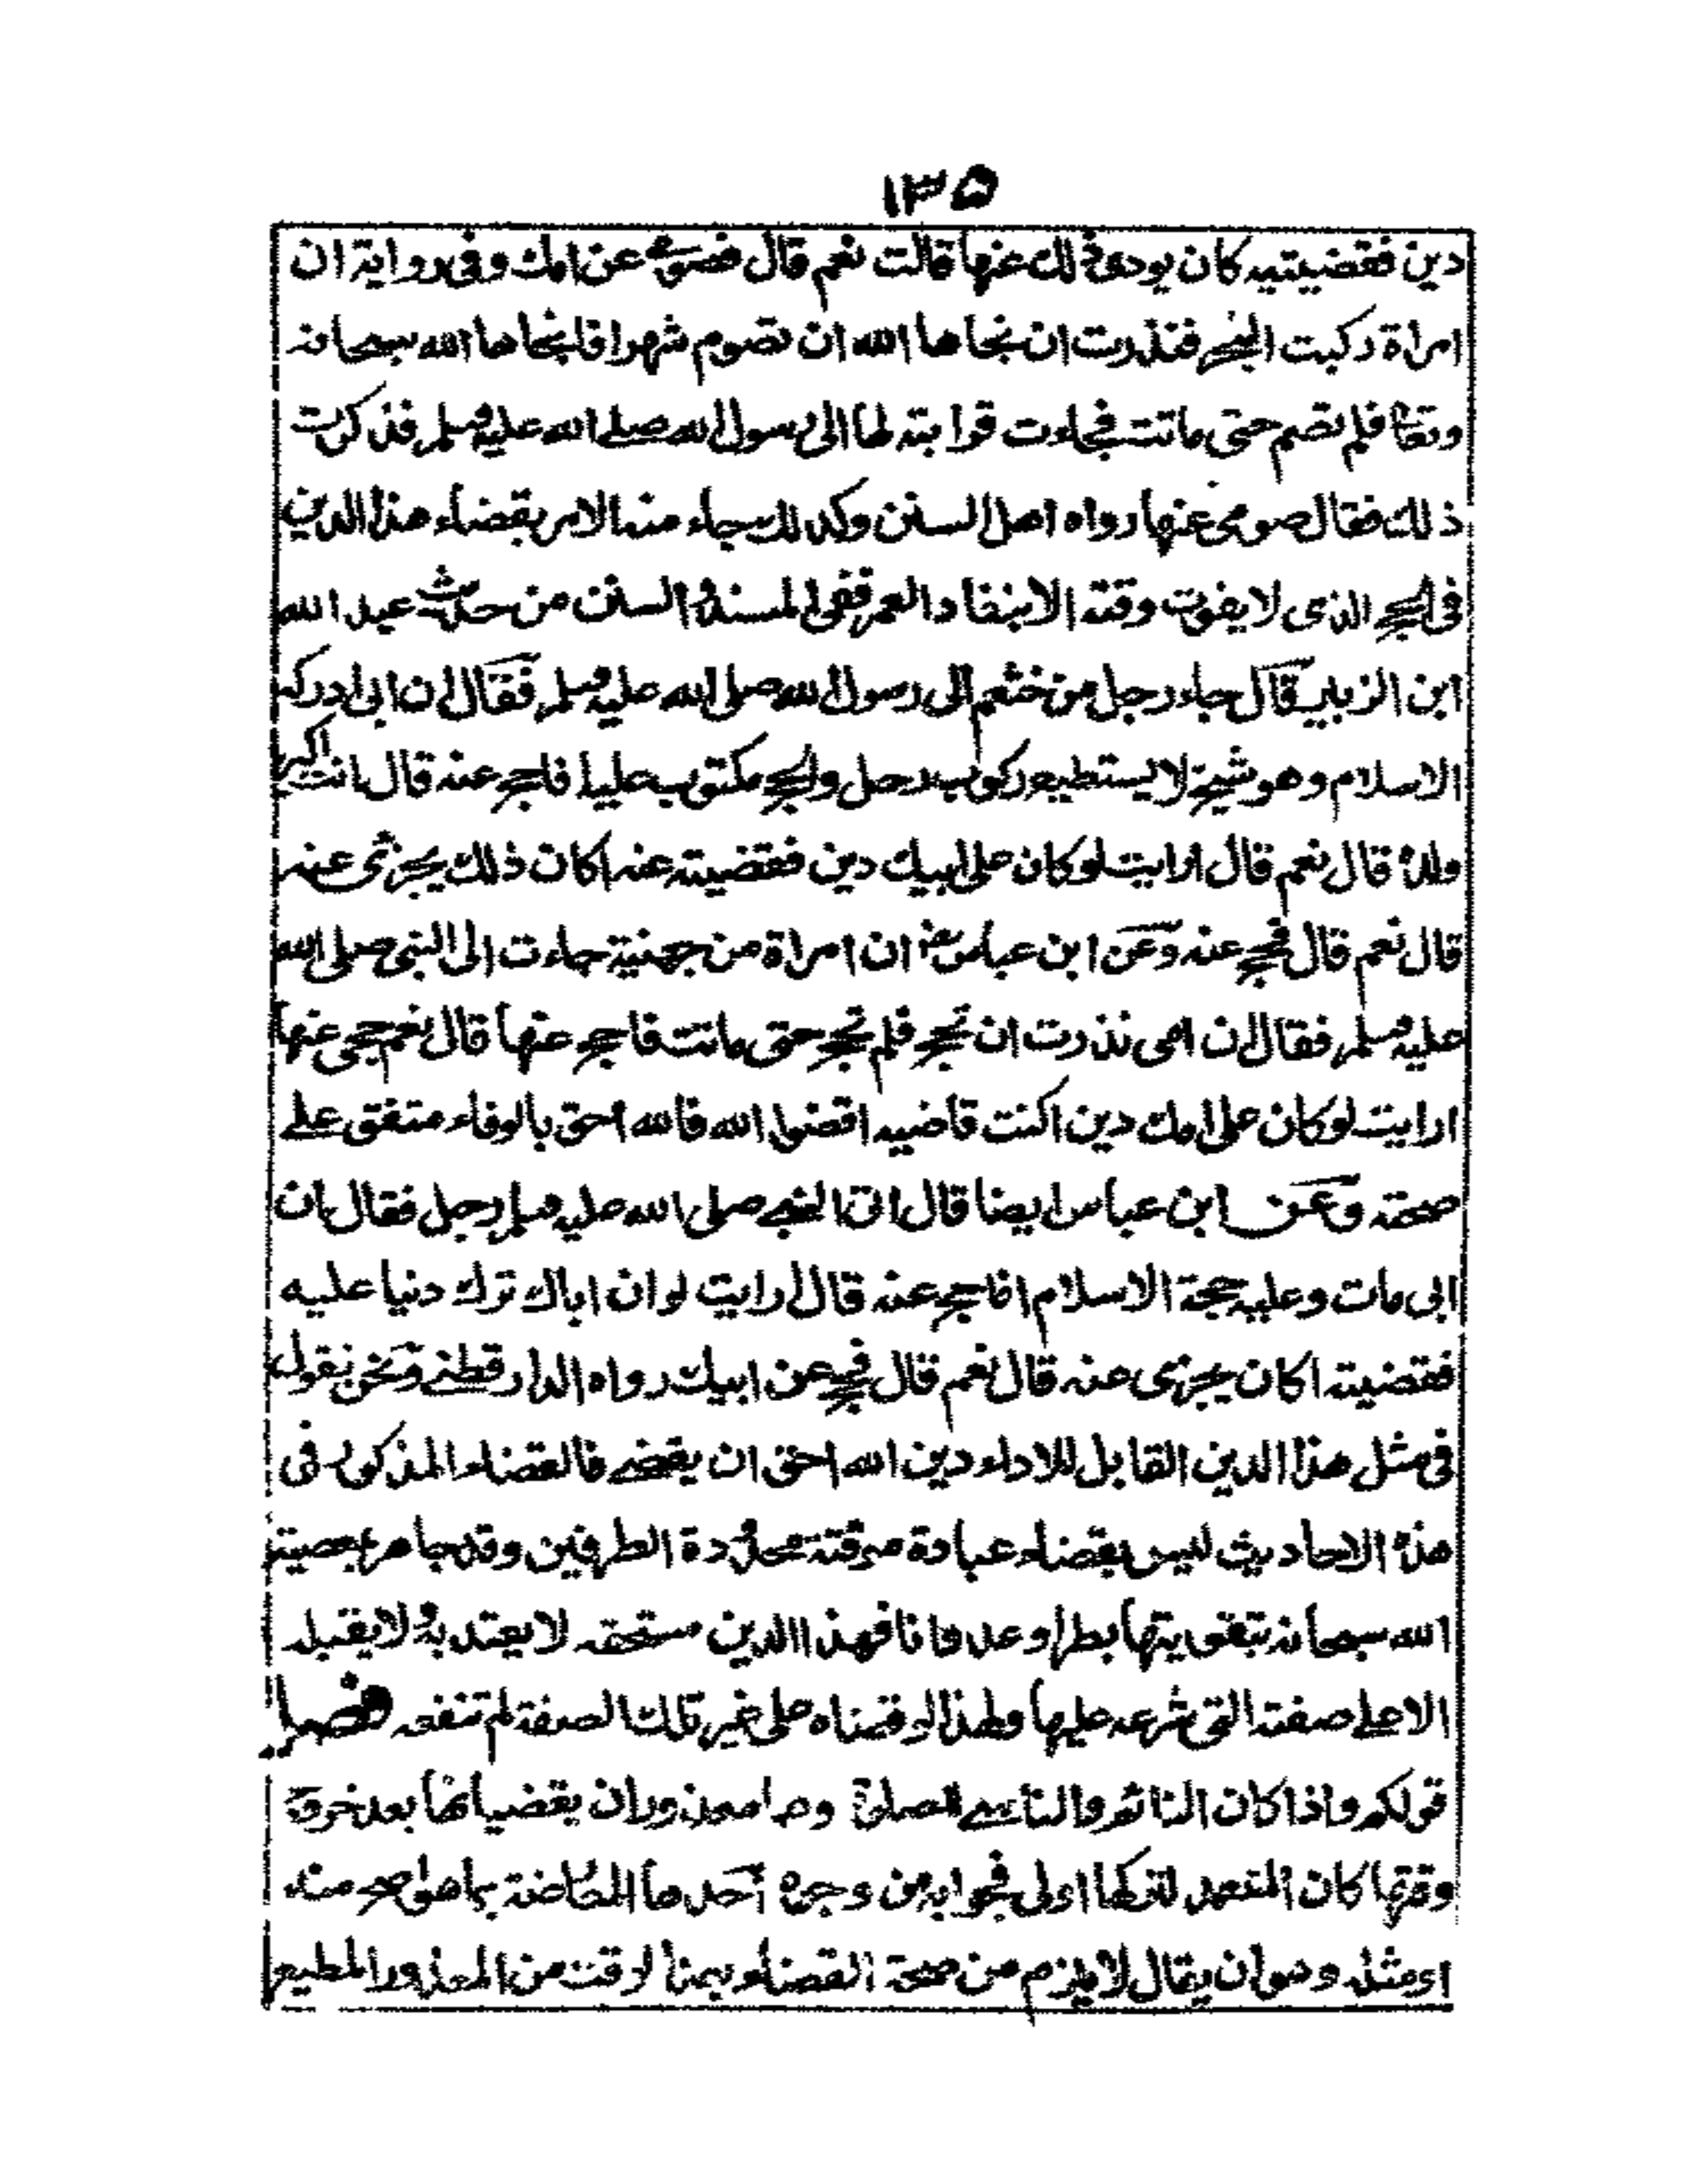 ١٣٥
دين فقضيتيه كان يودى ذلك عنها قالت نعم قال فصومى عن امك وفى رواية ان
امراة ركبت البحر فنذرت ان نجاها الله ان تصوم شهرا فانجاها الله سبحانه
وتعا فلم تصم حتى ماتت فجاءت قرابته لها الى رسول الله صلے الله عليه وسلم فذكرت
ذلك فقال صومى عنها رواه اهل السنن وكذلك جاء منه الامر بقضاء هذا الدين
فى الحج الذى لا يفوت وقته الا بنفاد العمر ففى المسند والسنن من حديث عبد الله
ابن الزبير قال جاء رجل من خثعم الى رسول الله صلى الله عليه وسلم فقال ان ابى ادركه
الاسلام وهو شيخ لا يستطيع ركوب رحل والحج مكتوب عليه افاحج عنه قال انت اكبر
ولده قال نعم قال ارايت لو كان على ابيك دين فقضيته عنه اكان ذلك يجزئ عنه
قال نعم قال فحج عنه وعن ابن عباس رض ان امراة من جهنية جاءت الى النبى صلى الله
عليه وسلم فقال ان امى نذرت ان تحج فلم تحج حتى ماتت فاحج عنها قال نعم حجى عنها
ارايت لو كان على امك دين اكنت قاضيه اقضوا الله فالله احق بالوفاء متفق علے
صحته وعن ابن عباس ايضا قال اتى النبے صلى الله عليه وسلم رجل فقال ان
ابى مات وعليه حجة الاسلام افاحج عنه قال ارايت لو ان اباك ترك دنيا عليه
فقضيته اكان يجزى عنه قال نعم قال فحج عن ابيك رواه الدار قطنے ونحن نقول
فى مثل هذا الدين القابل للاداء دين الله احق ان يقضے فالقضاء المذكور فى
هذه الاحاديث ليس بقضاء عبادة موقتة محدودة الطرفين وقد جاهر بمعصية
الله سبحانه بتفويتها بطرا وعدوانا فهذا الدين مستحقه لا يعتد به ولا يقبله
الا علے صفته التى شرعه عليها ولهذا لو قضاه على غير تلك الصفة لم تنفعه فصل
قولكم واذا كان النائم والناسے للصلوة وهما معذوران يقضيانها بعد خروج
وقتها كان المتعمد لتركها اولى فجوابه من وجوه احدها المعارضة بما هو اصح منه
او مثله وهو ان يقال لا يلزم من صحة القضاء بعد الوقت من المعذور المطيع